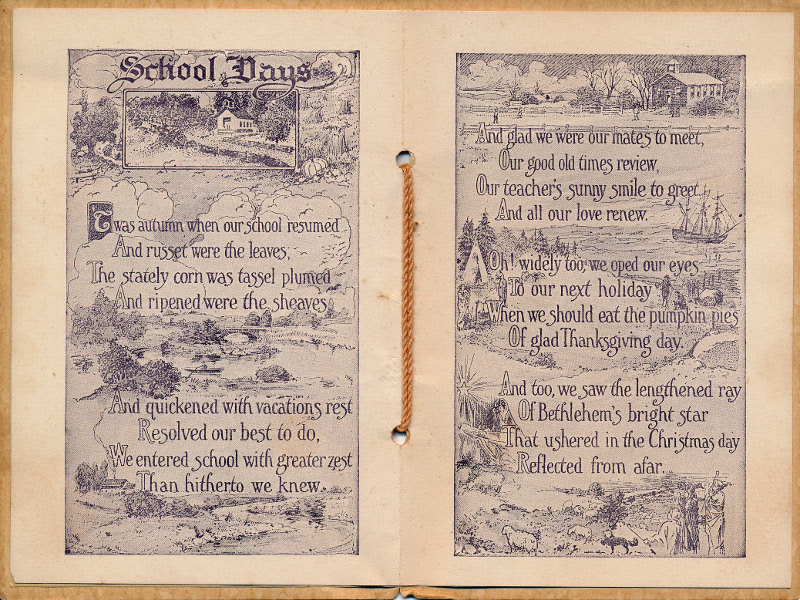 School Days
Twas autumn when our school resumed
And russet were the leaves;
The stately corn was tassel plumed
And ripened were the sheaves
And quickened with vacations rest
Resolved our best to do,
We entered school with greater zest
Than hitherto we knew.
And glad we were our mates to meet,
Our good old times review,
Our teacher's sunny smile to greet
And all our love renew.
Oh! widely too, we oped our eyes
To our next holiday
When we should eat the pumpkin pies
Of glad Thanksgiving day.
And too, we saw the lengthened ray
Of Bethlehem's bright star
That ushered in the Christmas day
Reflected from afar.